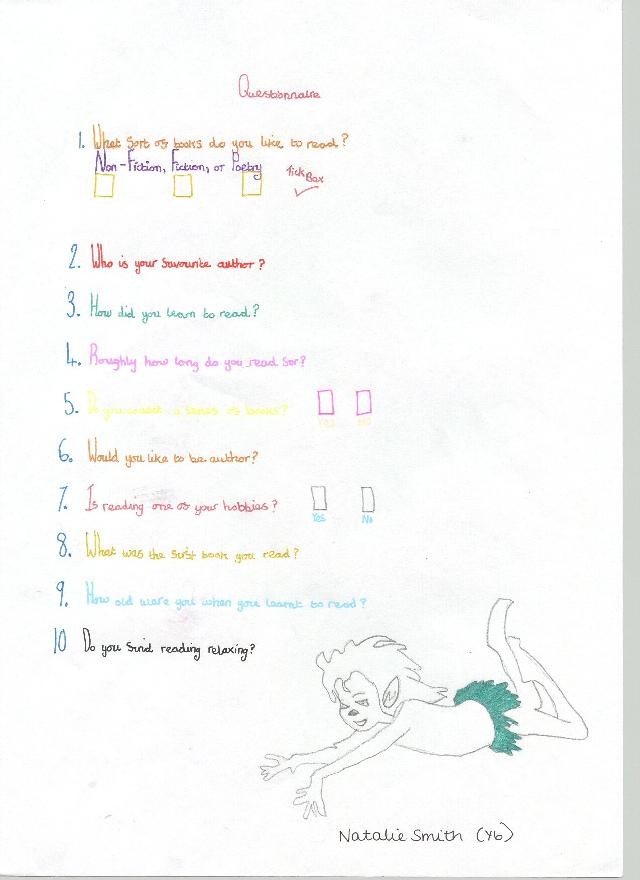 Questionnaire
1. What sort of books do you like to read?
Non-Fiction, Fiction, or Poetry
Tick Box
2. Who is your favourite author?
3. How did you learn to read?
4. Roughly how long do you read for?
5. Do you of books?
Yes No
6. Would you like to be author?
7. Is reading one of your hobbies?
Yes No
8. What was the first book you read?
9. How old were you when you learnt to read?
10 Do you find reading relaxing?
Natalie Smith (Y6)